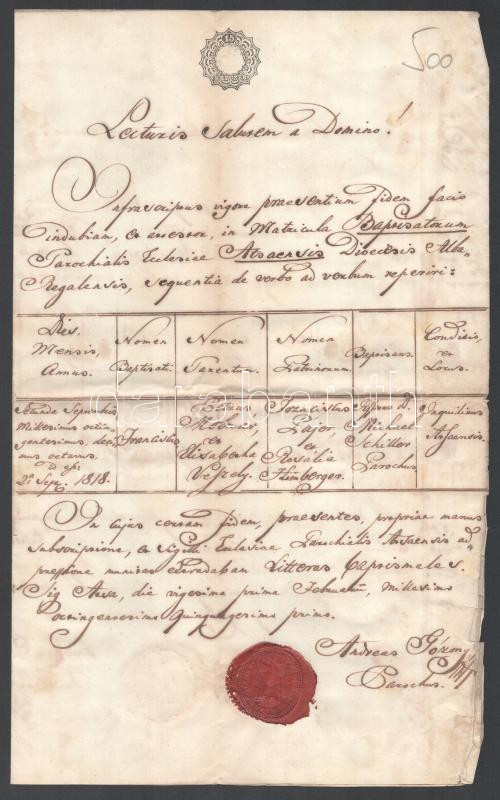 500
Lecturis Salutem a Domino!
Infrascriptus vigore praesentium fidem facio
indubiam, et assessor, in Matricula Baptisatorum
Parochialis Ecclesiae Atsaensis Dioecesis Alba-
Regalensis, sequentia de verbo ad verbum reperiri:
Dies, Mensis, Annus.
Nomen Baptisati.
Nomen Parentum.
Nomen Patrinorum.
Baptisans.
Conditio, et Locus.
Secunda Septembris Millesimi octingentesimi, decimi octavus. 2a Sept. 1818.
Franciscus
et Elisabetha Veszely.
Franciscus Pájer, et Rosalia Himberger.
D. Michael Schiller Parochus.
Inquilinus Atsaensis.
In cujus certam fidem, praesentes, propriae manus
subscriptione, et Sigilli Ecclesiae Parochialis Atsaensis ad-
pressione munitas extradabam Litteras baptismales.
Sig. Atsa, die vigesima prima Februarii, Millesimo
Octingentesimo Quinquagesimo primo.
Andreas
Parochus.
databanth